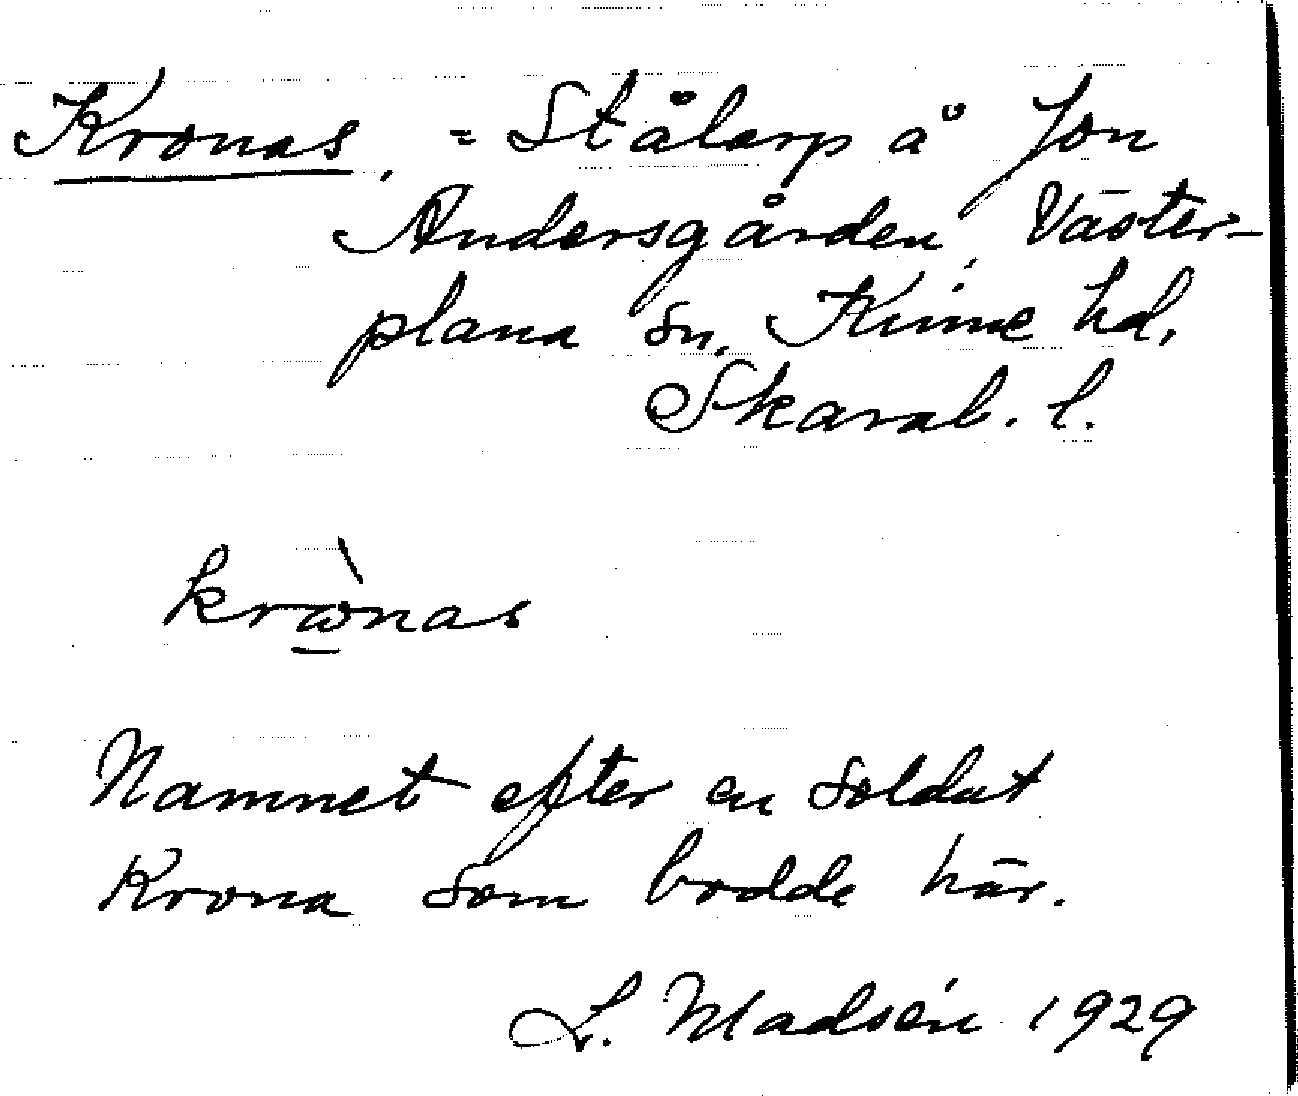 Kronas, = Stålarp å Jon
Andersgården, Väster-
plana sn, Kinne hd,
Skarab. l.
krὼ̲nas
Namnet efter en soldat
Krona som bodde här.
L. Madsén 1929